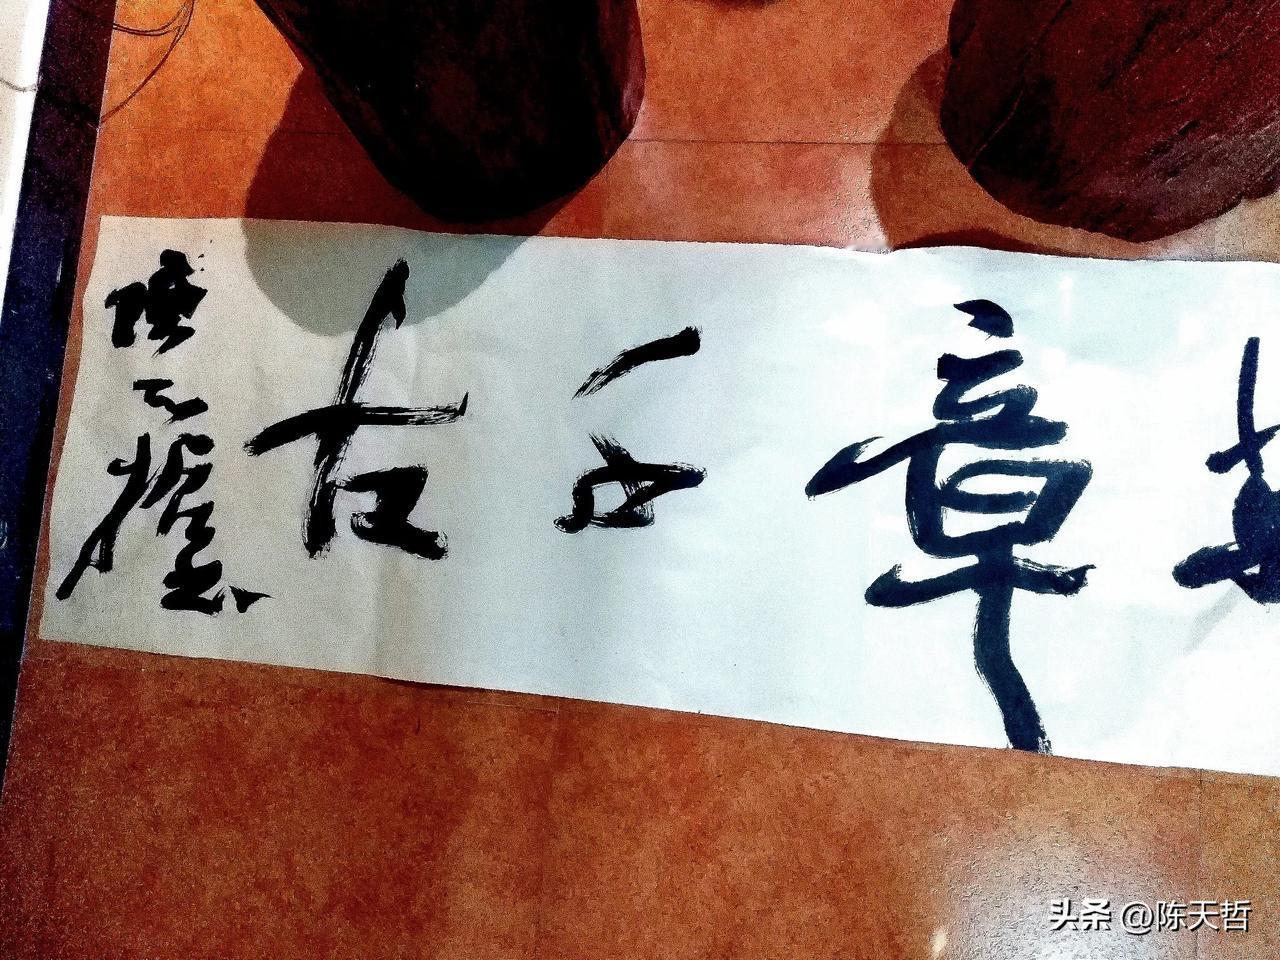 章千古
陈天哲书
头条 @陈天哲